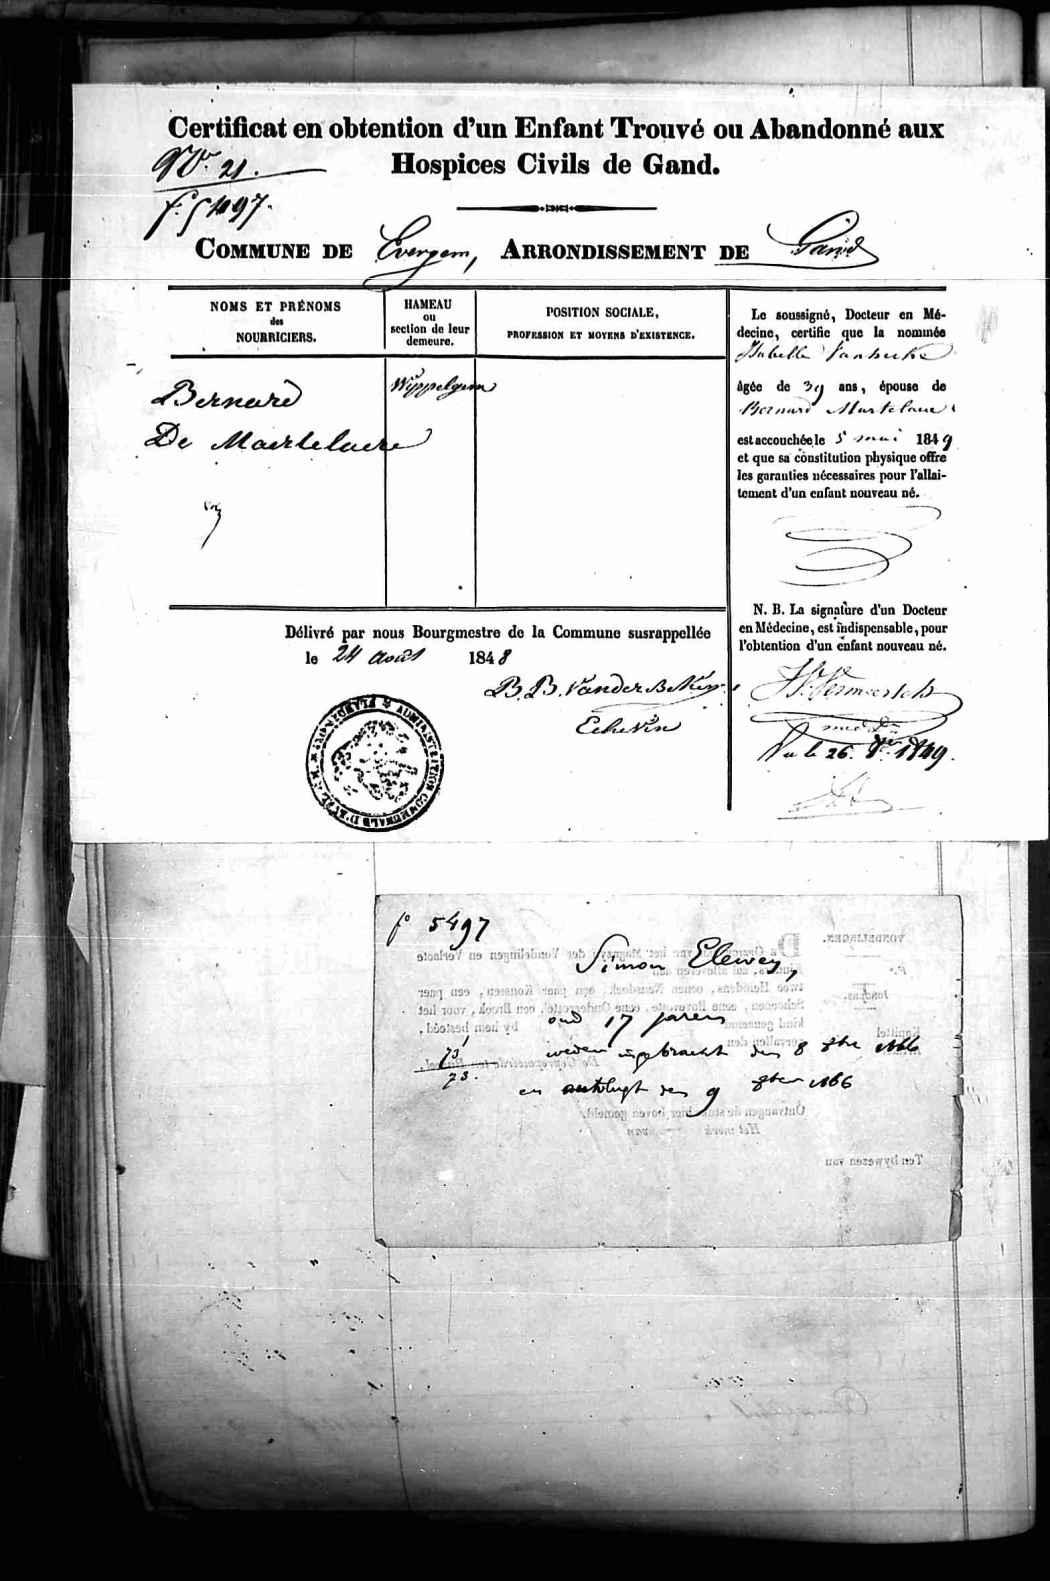 Certificat en obtention d'un Enfant Trouvé ou Abandonné aux
Hospices Civils de Gand.
N.° 21.
f. 5497.
COMMUNE DE Evergem, ARRONDISSEMENT DE Gand
NOMS ET PRÉNOMS
des
NOURRICIERS.
HAMEAU
ou
section de leur
demeure.
POSITION SOCIALE,
PROFESSION ET MOYENS D'EXISTENCE.
Bernard
De Maertelaere
Wippelgem
Le soussigné, Docteur en Mé-
decine, certifie que la nommée
Isabelle
âgée de 39 ans, épouse de
Bernard Martelaere
est accouchée le 5 mai 1849
et que sa constitution physique offre
les garanties nécessaires pour l'allai-
tement d'un enfant nouveau né.
N. B. La signature d'un Docteur
en Médecine, est indispensable, pour
l'obtention d'un enfant nouveau né.
Vu le 26. 1849.
Délivré par nous Bourgmestre de la Commune susrappellée
le 24 août 1848
B. B.
Echevin
ADMINISTRATION COMMUNALE D'EVERGEM
f° 5497
Simon Elewey,
oud 17 jaren
weder ingebracht den 8 8bre 1866
73
en den 9 8ber 1866
VONDELINGEN.
Ontvangen de stukken hier boven gemeld.
Het merk van
Ten bywezen van